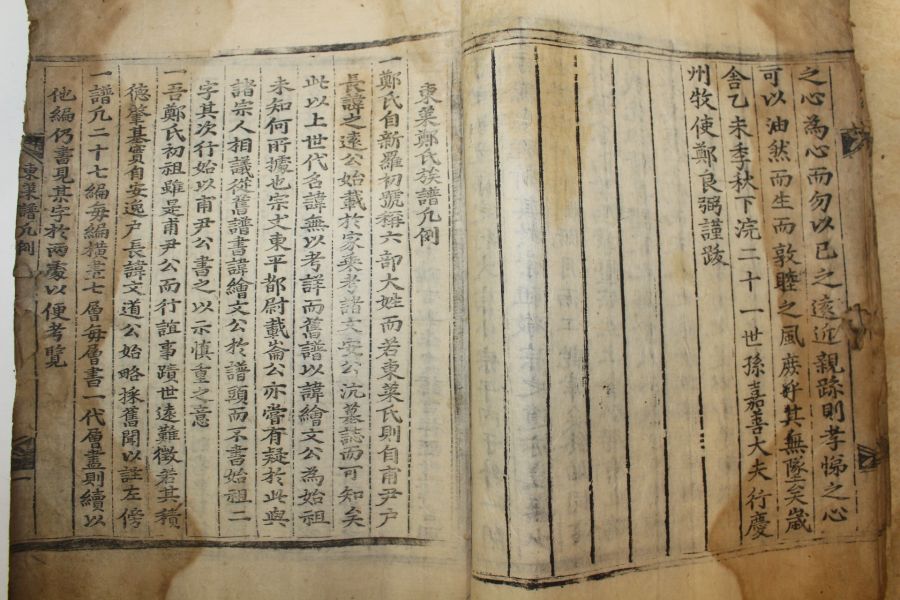 之心為心而勿以已之遠近親踈則孝悌之心
可以油然而生而敦睦之風庻乎其無墜矣歲
舎乙未季秋下浣二十一世孫嘉善大夫行慶
州牧使鄭良弼謹跋
東萊鄭氏族譜凡例
一鄭氏自新羅初號稱六部大姓而若東萊氏則自甫尹戶
長諱之遠公始載於家乘考諸文安公沆墓誌而可知矣
此以上世代名諱無以考詳而舊譜以諱繪文公為始祖
未知何所據也宗丈東平都尉載崙公亦嘗有疑於此與
諸宗人相議從舊譜書諱繪文公於譜頭而不書始祖二
字其次行始以甫尹公書之以示慎重之意
一吾鄭氏初祖雖是甫尹公而行誼事蹟世遠難徵若其積
德肇基實自安逸戶長諱文道公始略採舊聞以註左傍
一譜凡二十七編每編橫書七層每層書一代層盡則續以
他編仍書見某字於兩處以便考覽
東萊譜凡例
一